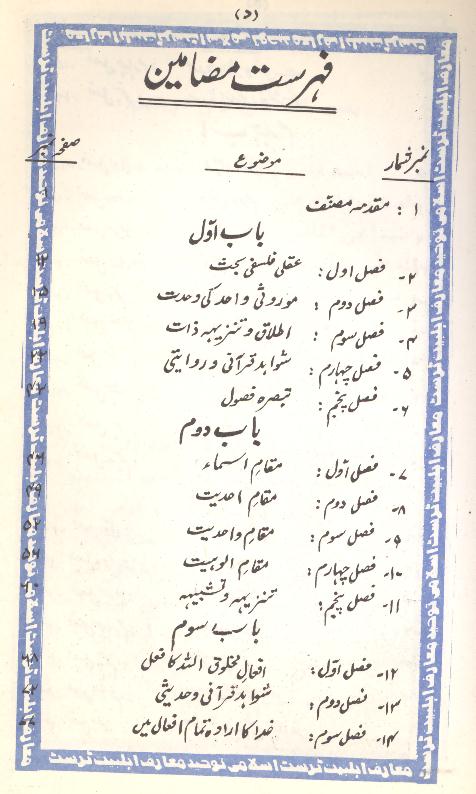 (د)
فہرست مضامین
نمبر شمار موضوع صفحہ نمبر
۱ : مقدمہ مصنف
باب اوّل
۲- فصل اول : عقلی فلسفی بحث
۳- فصل دوم : موروثی واحد کی وحدت
۴- فصل سوم : اطلاق و تنزیہہ ذات
۵- فصل چہارم : شواہد قرآنی و روایتی
۶- فصل پنجم : تبصرہ فصول
باب دوم
۷- فصل اوّل : مقام اسماء
۸- فصل دوم : مقام احدیت
۹- فصل سوم : مقام واحدیت
۱۰- فصل چہارم : مقام الوہیت
۱۱- فصل پنجم : تنزیہہ و تشبیہہ
باب سوم
۱۲- فصل اوّل : افعالِ مخلوق اللہ کا فعل
۱۳- فصل دوم : شواہد قرآنی و حدیثی
۱۴- فصل سوم : خدا کا ارادہ تمام افعال میں
معارف اہلبیت ٹرست اسلامی توحید معارف اہلبیت ٹرست